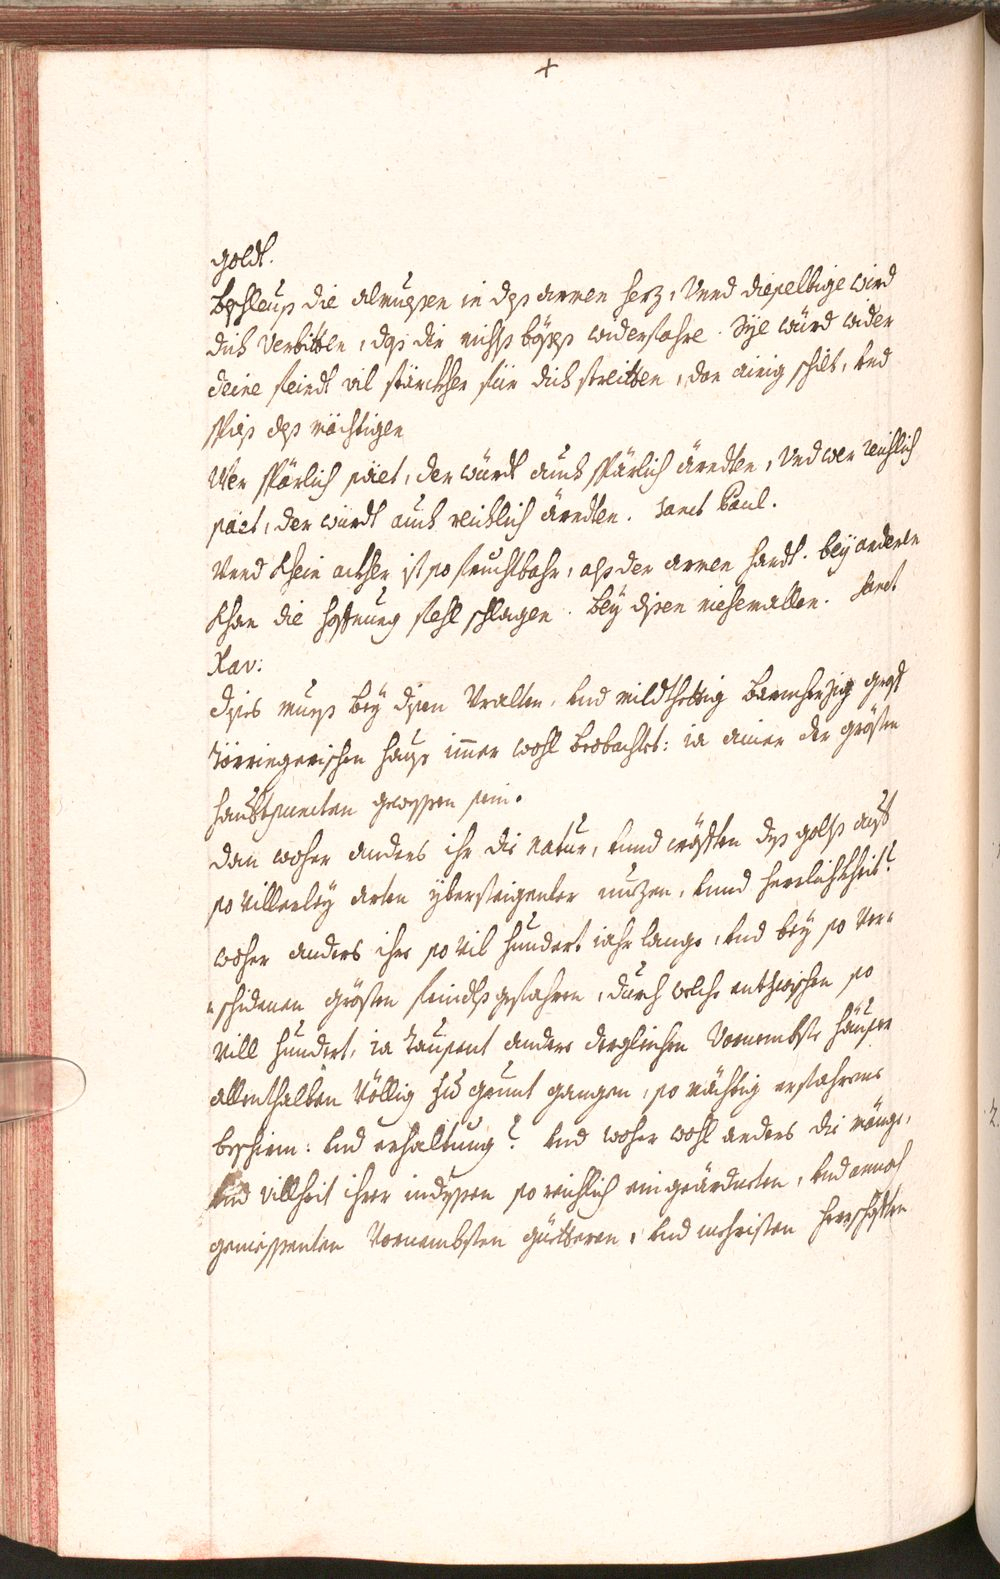 +
goldt.
Bschleuß die almueßen in deß armen herz, Vnnd dieselbige wird
dich verbitten, daß dir nichts böses widerfahre. Sye würd wider
deine feindt vil stärckher für dich streitten, dan ainig schilt, vnd
spies deß mächtigen
Wer spärlich säet, der würdt auch spärlich ärndten, Vnd wer reichlich
säet, der würdt auch reichlich ärndten. Sanct Paul.
Vnnd khein ackher ist so fruchtbahr, alß der armen handt. bey anderen
khan die hoffnung fehl schlagen. bey disen niehemallen. Sanct
Xav:
dises mueß bey disen Vralten, vnd mildthettig barmherzig graf
Törringerischen hauß immer wohl beobachtet: ia ainer der grösten
haubtpuncten gewessen sein.
dan woher anders ihr die natur, vnnd cräfften deß golts auf
so villerley arten ybersteigenter nuzen, vnnd herrlichkheit?
woher anders ihre so vil hundert iahr lange, vnd bey so ver=
=schidenen grösten feindtsgefahren, durch welche entzwischen so
vill hundert, ia Tausent andere dergleichen Vornembste häuser
allenthalben völlig zu grunt gangen, so mächtig erfahrene
beschirm: vnd erhaltung? vnd woher wohl anders die mänge,
vnd villheit ihrer indessen so reichlich eingeärndeten, vnd annoch
geniessenten Vornembsten güetteren, vnd mehristen herrschafften